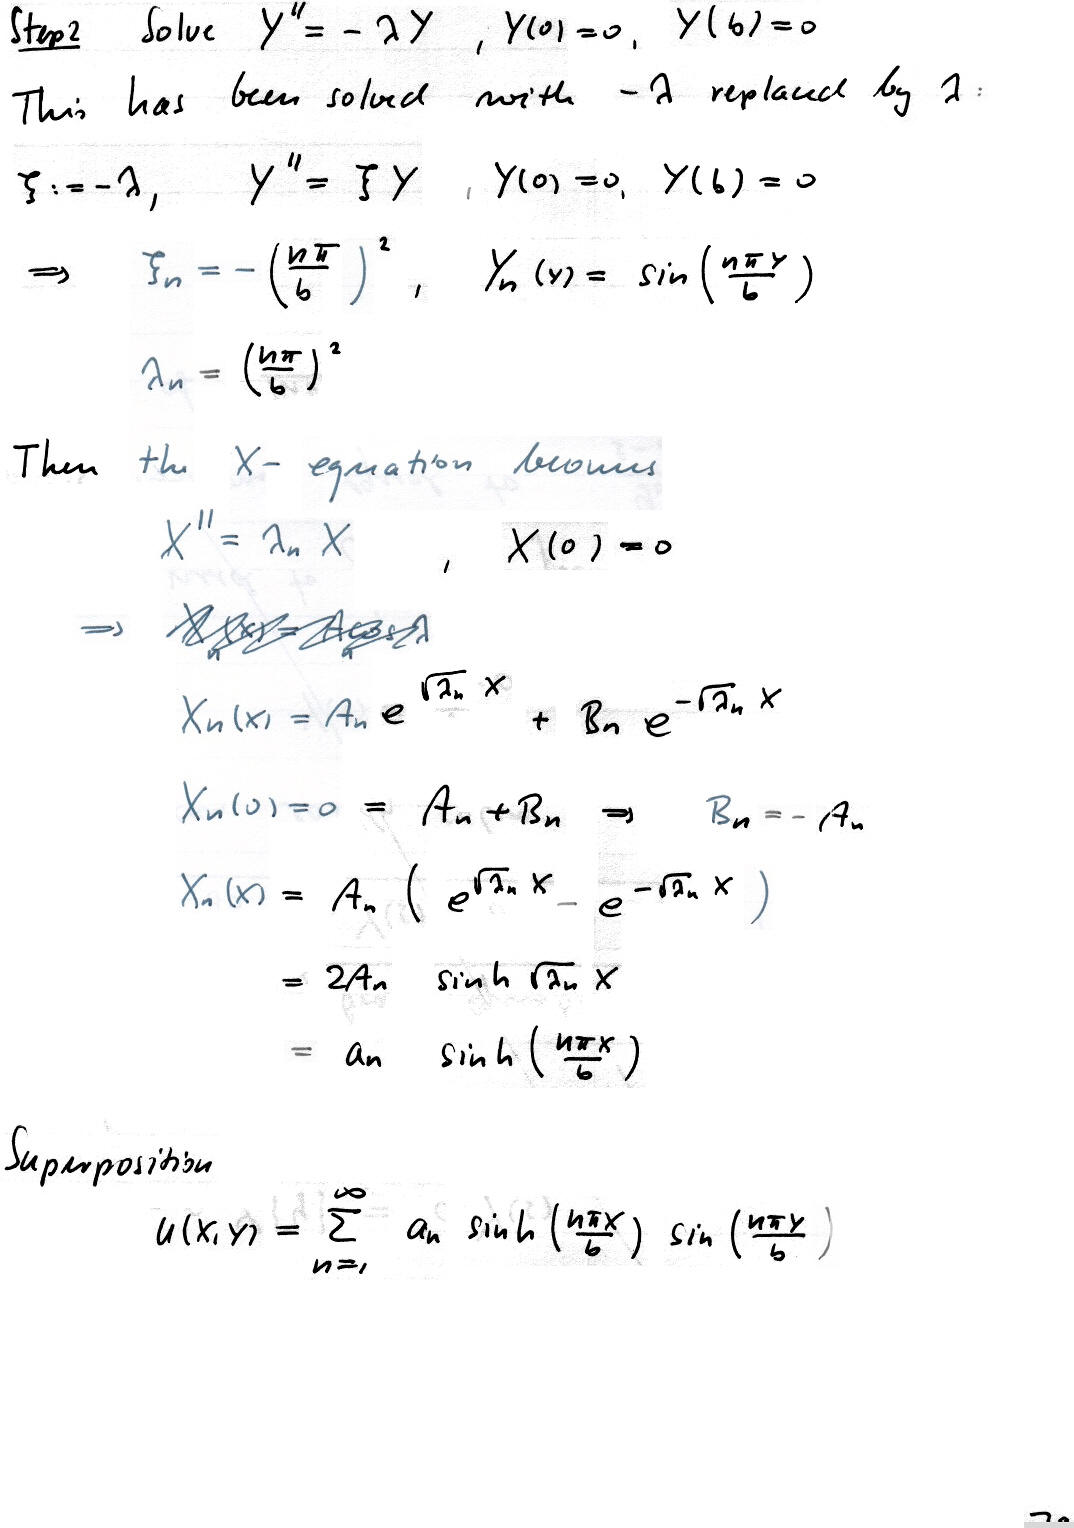 Step 2 Solve Y'' = - λ Y , Y(0) = 0, Y(b) = 0
This has been solved with -λ replaced by λ:
ξ := -λ, Y'' = ξ Y , Y(0) = 0, Y(b) = 0
⇒ ξn = - (nπ/b)² , Yn (y) = sin (nπy/b)
λn = (nπ/b)²
Then the X- equation becomes
X'' = λn X , X(0) = 0
⇒
Xn(x) = An e^(√λn x) + Bn e^(-√λn x)
Xn(0) = 0 = An + Bn ⇒ Bn = - An
Xn(x) = An ( e^(√λn x) - e^(-√λn x) )
= 2An sinh √λn x
= an sinh (nπx/b)
Superposition
u(x,y) = ∑_{n=1}^{∞} an sinh (nπx/b) sin (nπy/b)